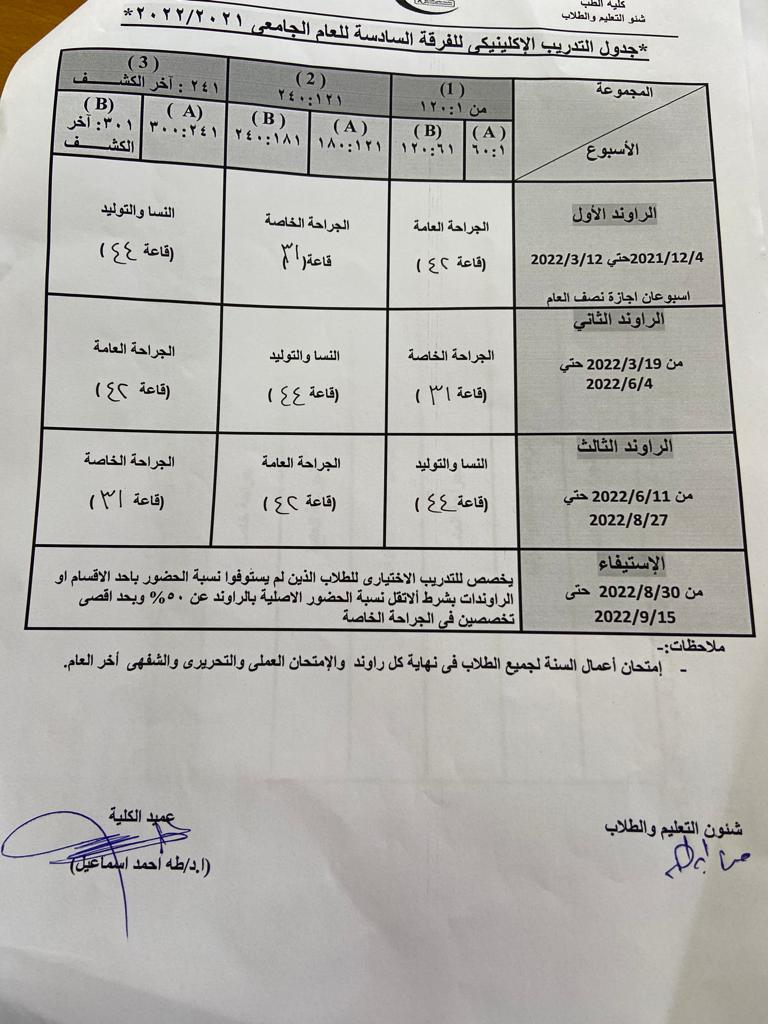 كلية الطب
شئو التعليم والطلاب
*جدول التدريب الإكلينيكى للفرقة السادسة للعام الجامعى ٢٠٢٢/٢٠٢١*
المجموعة
الأسبوع
(1)
من ١:١٢٠
(2)
١٢١:٢٤٠
(3)
٢٤١ : آخر الكشف
(A)
١:٦٠
(B)
٦١:١٢٠
(A)
١٢١:١٨٠
(B)
١٨١:٢٤٠
(A)
٢٤١:٣٠٠
(B)
٣٠١: آخر
الكشف
الراوند الأول
2021/12/4حتي 2022/3/12
اسبوعان اجازة نصف العام
الجراحة العامة
(قاعة ٤٢)
الجراحة الخاصة
قاعة(٣١)
النسا والتوليد
(قاعة ٤٤)
الراوند الثاني
من 2022/3/19 حتي
2022/6/4
الجراحة الخاصة
(قاعة ٣١)
النسا والتوليد
(قاعة ٤٤)
الجراحة العامة
(قاعة ٤٢)
الراوند الثالث
من 2022/6/11 حتي
2022/8/27
النسا والتوليد
(قاعة ٤٤)
الجراحة العامة
(قاعة ٤٢)
الجراحة الخاصة
(قاعة ٣١)
الإستيفاء
من 2022/8/30 حتى
2022/9/15
يخصص للتدريب الاختيارى للطلاب الذين لم يستوفوا نسبة الحضور باحد الاقسام او
الراوندات بشرط ألاتقل نسبة الحضور الاصلية بالراوند عن ٥٠% وبحد اقصى
تخصصين فى الجراحة الخاصة
ملاحظات:-
- إمتحان أعمال السنة لجميع الطلاب فى نهاية كل راوند والإمتحان العملى والتحريرى والشفهى أخر العام.
شئون التعليم والطلاب
عميد الكلية
(ا.د/طه أحمد اسماعيل)